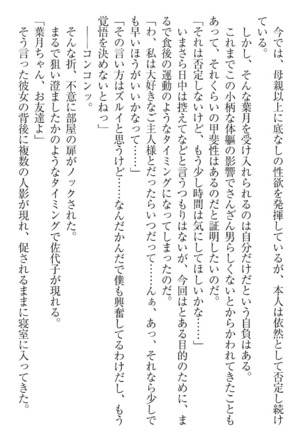 今では、母親以上に底なしの性欲を発揮しているが、本人は依然として否定し続け
ている。
しかし、そんな葉月を受け入れられるのは自分だけだという自負はある。
これまでこの小柄な体躯の影響でさんざん男らしくないとからかわれてきたことも
あって、それくらいの甲斐性はあるのだと証明したいのだ。
「それは否定しないけど、もう少し時間は気にしてほしいかな……」
いまさら日中は控えてなどと言うつもりはないが、今回はとある目的のために、ま
るで食後の運動のようなタイミングになってしまったのだ。
「わ、私は大好きなご主人様とだったらいつだって……んぁ、あっ、それなら少しで
も早いほうがいいかなって……」
「その言い方はズルイと思うけど……なんだかんだで僕も興奮してるわけだし、もう
覚悟を決めないとねっ」
――コンコンッ。
そんな折、不意に部屋の扉がノックされた。
まるで狙い澄ましたかのようなタイミングで佐代子が現れる。
「葉月ちゃん、お友達よ」
そう言った彼女の背後に複数の人影が現れ、促されるままに寝室に入ってきた。